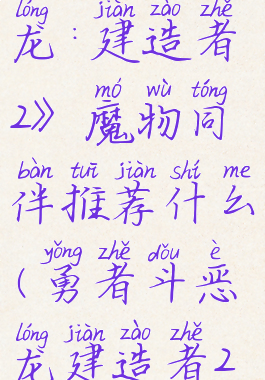 lóng jiàn zào zhě
龙：建造者
mó wù tóng
2》 魔物同
bàn tuī jiàn shí me
伴推荐什么
yǒng zhě dǒu è
（勇者斗恶
lóng jiàn zào zhě
龙建造者2